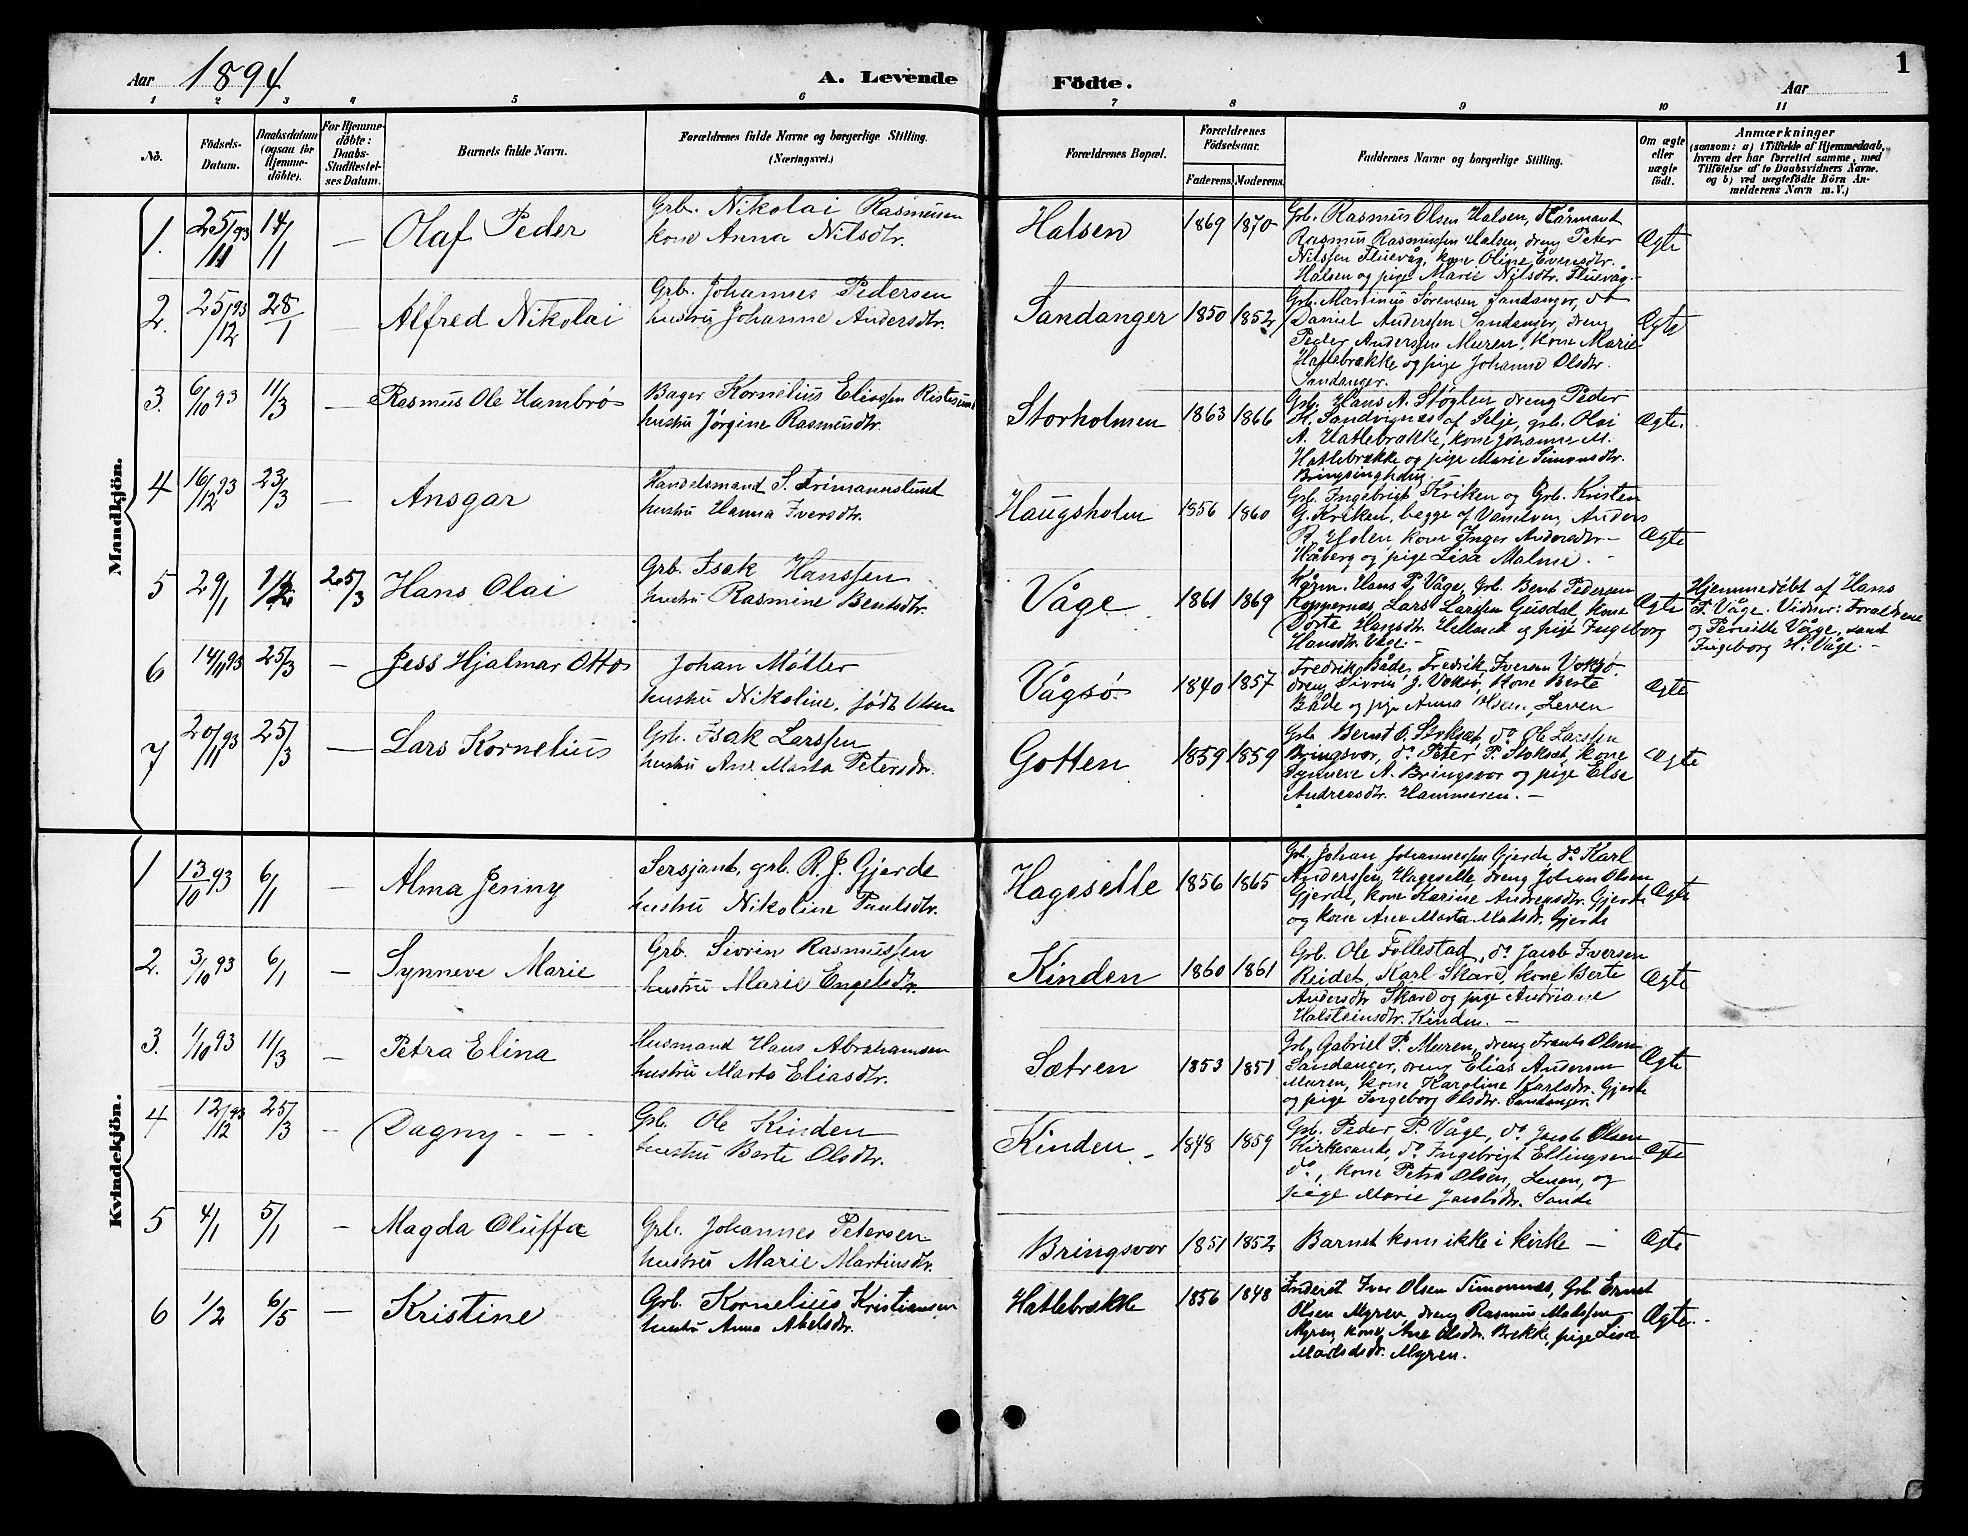 Aar 1894
A. Levende Födte.
Aar
1
1 2 3 4 5 6 7 8 9 10 11
No.
Födsels-Datum.
Daabsdatum (ogsaa for Hjemme-döbte).
For Hjemme-döbte: Daabs-Stadfæstel-ses Datum.
Barnets fulde Navn.
Forældrenes fulde Navne og borgerlige Stilling.
(Næringsvei.)
Forældrenes Bopæl.
Forældrenes Födselsaar.
Faderens. Moderens.
Faddernes Navne og borgerlige Stilling.
Om ægte eller uægte födt.
Anmærkninger
(saasom: a) i Tilfælde af Hjemmedaab,
hvem der har forrettet samme, med
Tilföielse af to Daabsvidners Navne,
og b) ved uægtefödte Börn An-
melderens Navn m. V.)
Mandkjön.
1. 25/11 93 14/1 — Olaf Peder
Grb. Nikolai Rasmussen
kone Anna Nilsdtr.
Halsen 1869 1870
Grb. Rasmus Olsen Halsen, Kårmand
Rasmus Rasmussen Halsen, dreng Peter
Nilssen Fluevåg, kone Oline Evensdtr.
Halsen og pige Marie Nilsdtr. Fluevåg
Ægte
2. 25/12 93 28/1 — Alfred Nikolai
Grb. Johannes Pedersen
hustru Johanne Andersdtr.
Sandanger 1850 1852
Grb. Martinus Sörensen Sandanger, do
Daniel Anderssen Sandanger, dreng
Peder Anderssen Muren, kone Marie
Hatlebrække og pige Johanne Olsdtr.
Sandanger.
Ægte
3. 6/10 93 11/3 — Rasmus Ole Hambrø
Bager Kornelius Eliassen
hustru Jørgine Rasmusdtr.
Storholmen 1863 1866
Grb. Hans A. Støylen dreng Peder
H. Sandviknæs af Selje, grb. Olai
A. Hatlebrække, kone Johanne M.
Hatlebrække og pige Marie Simonsdtr.
Ægte.
4 16/12 93 23/3 — Ansgar
Handelsmand S. Frimannslund
hustru Hanna Iversdtr.
Haugsholm 1856 1860
Grb. Ingebrigt Kriken og Grb. Kristen
G. Kriken, begge af Vanelven, Anders
R. Holen kone Inger Andersdtr.
Håberg og pige Lisa Malme
Ægte
5 29/1 25/3 Hans Olai
Grb. Isak Hanssen
hustru Rasmine Bentsdtr.
Våge 1861 1869
Kårm. Hans P. Våge, Grb. Bent Pedersen
Koppernæs, Lars Larssen Gusdal, kone
Dorte Hansdtr. og pige Ingeborg
Hansdtr. Våge.
Ægte
Hjemmedøbt af Hans
P. Våge. Vidner: Forældrene
og Pernille Våge, samt
Ingeborg H. Våge. —
6 14/11 93 25/3 — Jess Hjalmar Otto
Johan Møller
hustru Nikoline, født Olsen
Vågsö. 1840 1857
Fredrik Både, Fredrik Iversen Voksø.
dreng Sivrin J. Voksø, kone Berte
Både og pige Anna Olsen, Leven
Ægte
7 20/11 93 25/3 — Lars Kornelius
Grb. Isak Larssen
hustru Ane Marta Petersdtr.
Gotten 1859 1859
Grb. Bernt O. Stokset, do Ole Larssen
Bringsvor, do Peter P. Stokset, kone
Synneve A. Bringsvor og pige Else
Andreasdtr. Hammeren. —
Ægte
Kvindekjön.
1 13/10 93 6/1 — Alma Jenny
Sersjant, grb. R. J. Gjerde
hustru Nikoline Paulsdtr.
Hageselle 1856 1865
Grb. Johan Johannessen Gjerde, do Karl
Anderssen Hageselle, dreng Johan Olsen
Gjerde, kone Karine Andreasdtr. Gjerde
og kone Ane Marta Madsdtr. Gjerde
Ægte
2. 3/10 93 6/1 — Synneve Marie
Grb. Sivrin Rasmussen
hustru Marie Engelsdtr.
Kinden 1860 1861
Grb. Ole Follestad, do Jacob Iversen
Reidet, Karl Skare, kone Berte
Andersdtr. Skare og pige Andriane
Halsteinsdtr. Kinden. —
Ægte
3. 1/10 93 11/3 — Petra Elina
Husmand Hans Abrahamsen
hustru Marta Eliasdtr.
Sætren 1853 1851
Grb. Gabriel P. Muren, dreng Frants Olsen
Sandanger, dreng Elias Andersen
Muren, kone Karoline Karlsdtr. Gjerde
og pige Ingeborg Olsdtr. Sandanger.
Ægte
4 12/12 93 25/3 — Dagny
Grb. Ole Kinden
hustru Berte Olsdtr.
Kinden 1848 1859
Grb. Peder P. Våge, do Jacob Olsen
Kirkesande, do Ingebrigt Ellingsen
do, kone Petra Olsen, Leven, og
pige Marie Jacobsdtr. Sande
Ægte
5 4/1 5/1 — Magda Oluffa
Grb. Johannes Petersen
hustru Marie Martinsdtr.
Bringsvor 1851 1852
Barnet kom ikke i kirke —
Ægte
6 1/2 6/5 — Kristine
Grb. Kornelius Kristiansen
hustru Anna Abelsdtr.
Hatlebrække 1856 1848
Inderst Iver Olsen Simonnes, Grb. Ernst
Olsen Myren, dreng Rasmus Madssen
Myren, kone Ane Olsdtr. Brekke, pige Lisa
Madsdtr. Myren.
Ægte.